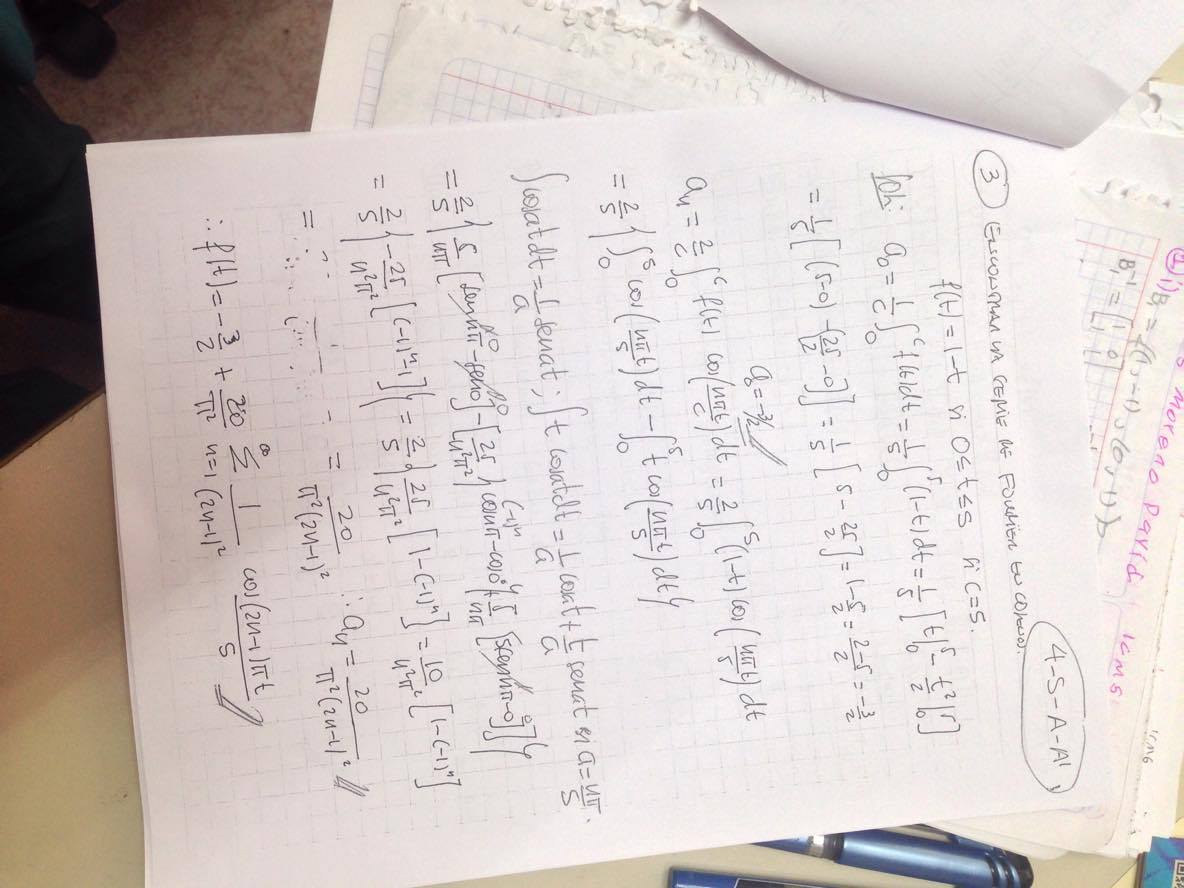 1 i) B₁ = {(1, -1), (0, 1)}
Moreno David
1CM5
1CM6
B₁⁻¹ = [1 0
4-S-A-A'
3 ENCONTRAR LA SERIE DE FOURIER EN COSENOS.
f(t) = 1-t si 0≤t≤5 si c=5.
Sol: a₀ = 1/c ∫₀ᶜ f(t)dt = 1/5 ∫₀⁵ (1-t)dt = 1/5 [t|₀⁵ - t²/2|₀⁵]
= 1/5 [(5-0) -(25/2 -0)] = 1/5 [5 - 25/2] = 1-5/2 = 2-5/2 = -3/2
a₀ = -3/2
aₙ = 2/c ∫₀ᶜ f(t) cos(nπt/c) dt = 2/5 ∫₀⁵ (1-t) cos(nπt/5) dt
= 2/5 { ∫₀⁵ cos(nπt/5) dt - ∫₀⁵ t cos(nπt/5) dt }
∫cosat dt = 1/a senat ; ∫t cosat dt = 1/a cosat + t/a senat si a = nπ/5.
= 2/5 { 5/nπ [sennπ⁰ - sen0⁰] - [25/n²π² } (-1)ⁿ cosnπ - cos0 } + 5/nπ [5sennπ-0⁰]] }
= 2/5 { -25/n²π² [(-1)ⁿ-1] } = 2/5 { 25/n²π² [1-(-1)ⁿ] = 10/n²π² [1-(-1)ⁿ]
= = 20/π²(2n-1)² ∴ aₙ = 20/π²(2n-1)²
∴ f(t) = -3/2 + 20/π² ∑ₙ₌₁^∞ 1/(2n-1)² cos(2n-1)πt/5